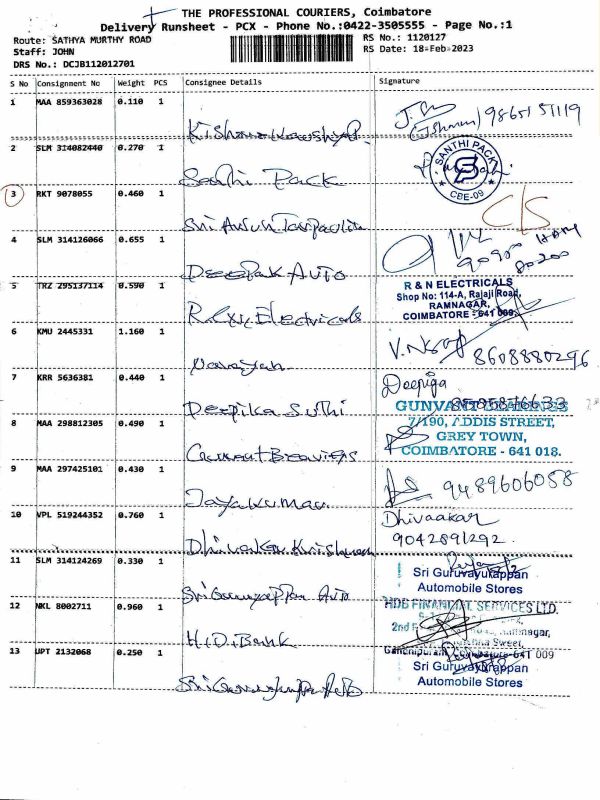 THE PROFESSIONAL COURIERS, Coimbatore
Delivery Runsheet - PCX - Phone No.:0422-3505555 - Page No.:1
Route: SATHYA MURTHY ROAD
RS No.: 1120127
Staff: JOHN
RS Date: 18-Feb-2023
DRS No.: DCJB112012701
S No Consignment No Weight PCS Consignee Details Signature
1 MAA 859363028 0.110 1
2 SLM 314082440 0.270 1 Santhi Pack
SANTHI PACK
CBE-09
3 RKT 9078055 0.460 1 Sri Arun Tarpaulin
4 SLM 314126066 0.655 1 Deepak Auto
5 TRZ 295137114 0.590 1 Electricals
R & N ELECTRICALS
Shop No: 114-A, Rajaji Road,
RAMNAGAR,
COIMBATORE - 641 009.
6 KMU 2445331 1.160 1 Narayan
8608880296
7 KRR 5636381 0.440 1 Deepika Suthi
Deepiga
8 MAA 298812305 0.490 1
GUNVANT
7/190, ADDIS STREET,
GREY TOWN,
COIMBATORE - 641 018.
9 MAA 297425101 0.430 1 Jayakumar
9489606058
10 VPL 519244352 0.760 1 Dhivakar Krishnan
Dhivaakar
9042891292
11 SLM 314124269 0.330 1 Sri Guruvayappan Auto
Sri Guruvayurappan
Automobile Stores
12 NKL 8002711 0.960 1 H.D. Bank
HDB FINANCIAL SERVICES LTD.
2nd
Gandhipuram, Coimbatore-641 009
13 UPT 2132068 0.250 1
Sri Guruvayurappan
Automobile Stores